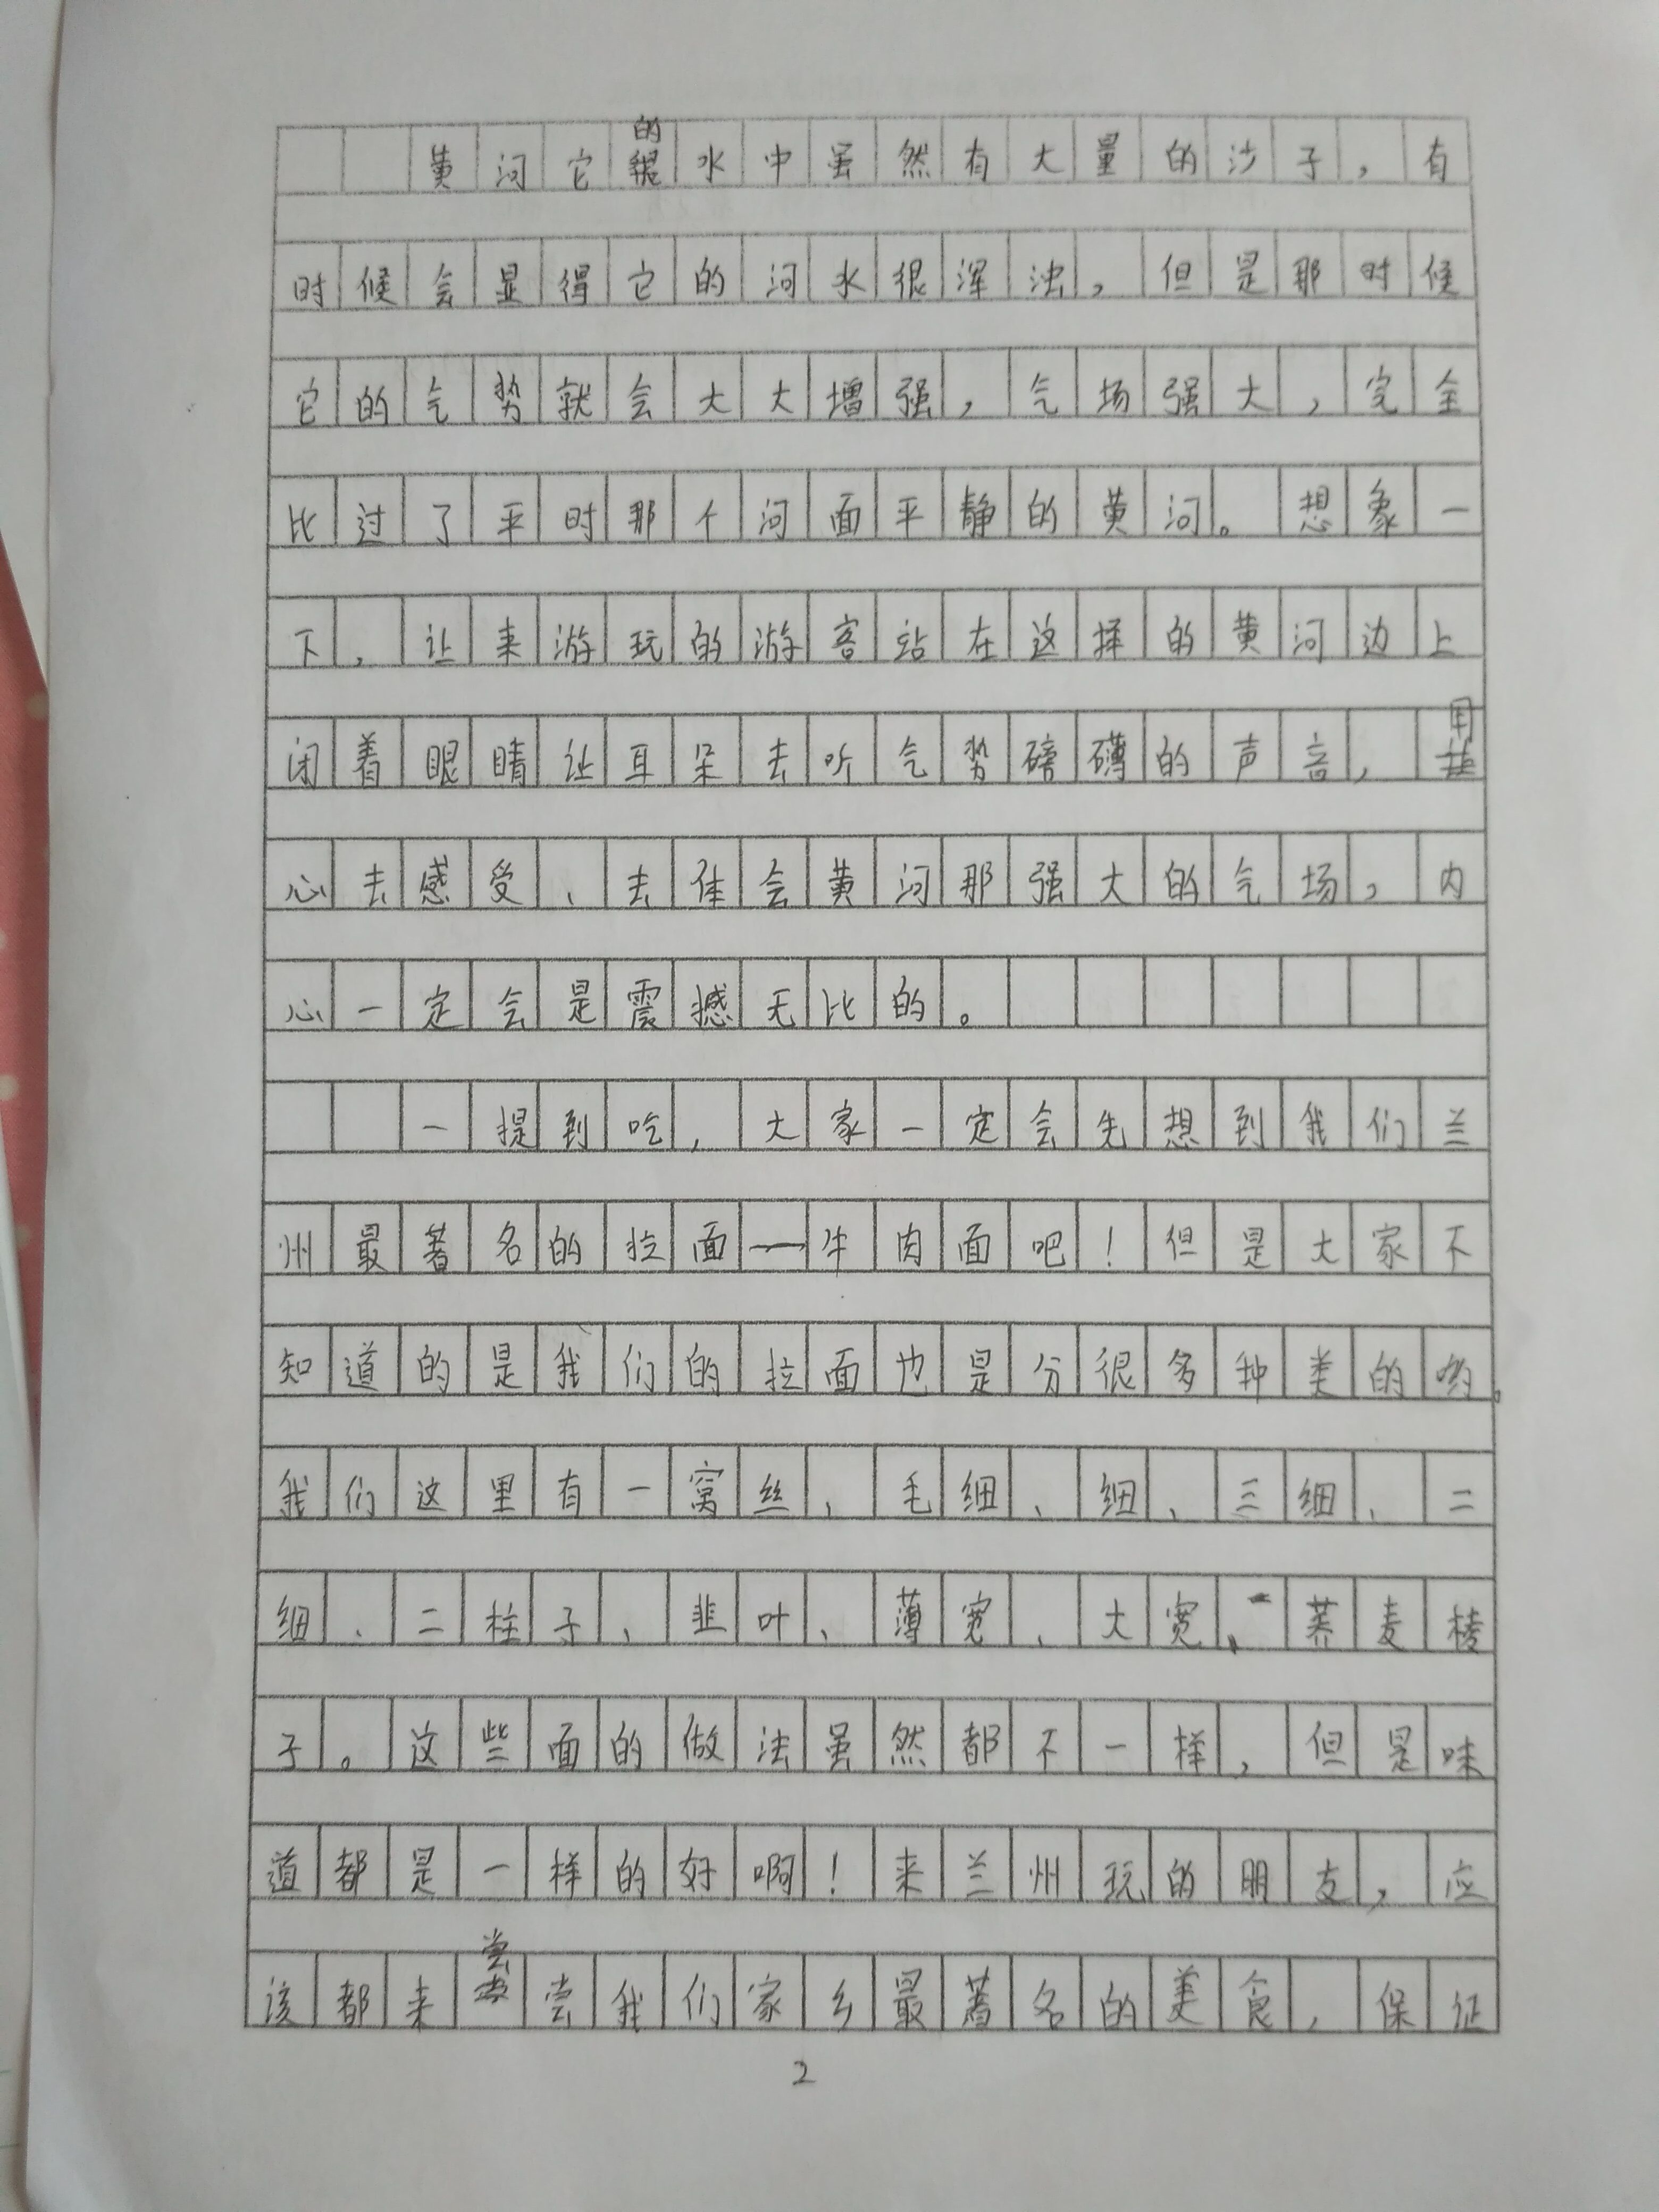 黄河它的水中虽然有大量的沙子，有
时候会显得它的河水很浑浊，但是那时候
它的气势就会大大增强，气场强大，完全
比过了平时那个河面平静的黄河。想象一
下，让来游玩的游客站在这样的黄河边上
闭着眼睛让耳朵去听气势磅礴的声音，用
心去感受、去体会黄河那强大的气场，内
心一定会是震撼无比的。
一提到吃，大家一定会先想到我们兰
州最著名的拉面——牛肉面吧！但是大家不
知道的是我们的拉面也是分很多种类的哟。
我们这里有一窝丝、毛细、细、三细、二
细、二柱子、韭叶、薄宽、大宽、荞麦棱
子。这些面的做法虽然都不一样，但是味
道都是一样的好啊！来兰州玩的朋友，应
该都来尝尝我们家乡最著名的美食，保证
2